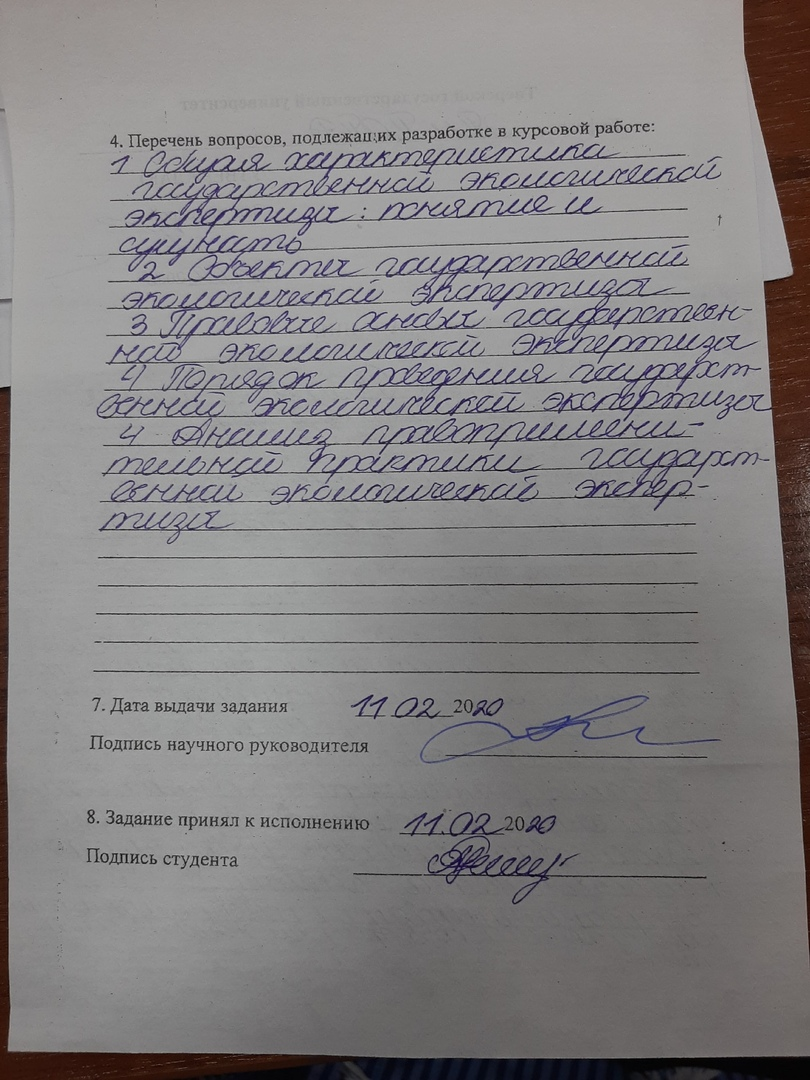 4. Перечень вопросов, подлежащих разработке в курсовой работе:
1 Общая характеристика
государственной экологической
экспертизы: понятие и
сущность
2 Объекты государственной
экологической экспертизы
3 Правовые основы государствен-
ной экологической экспертизы
4 Порядок проведения государст-
венной экологической экспертизы
4 Анализ правопримени-
тельной практики государст-
венной экологической экспер-
тизы
7. Дата выдачи задания 11 02 2020
Подпись научного руководителя
8. Задание принял к исполнению 11.02 2020
Подпись студента